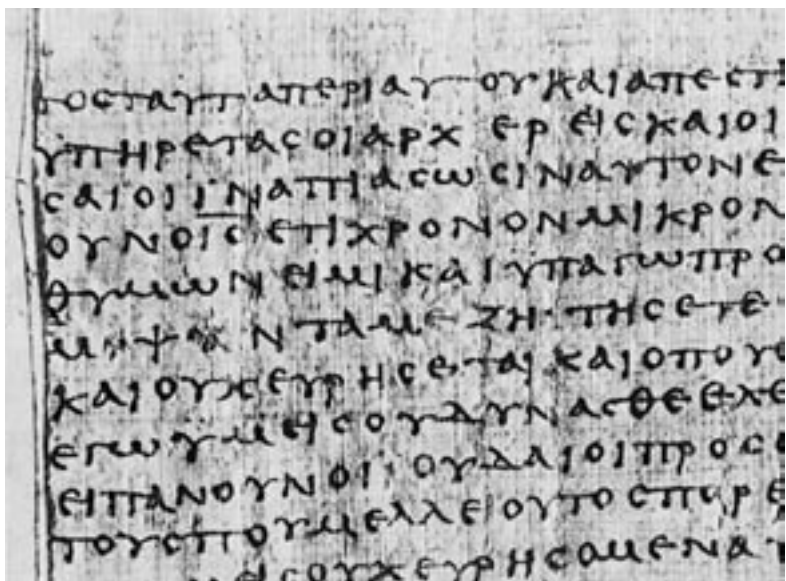 ΤΟϹΤΑΥΤΑΠΕΡΙΑΥΤΟΥΚΑΙΑΠΕϹΤΕ
ΥΠΗΡΕΤΑϹΟΙΑΡΧΕΡΕΙϹΚΑΙΟΙ
ϹΑΙΟΙΙΝΑΠΙΑϹΩϹΙΝΑΥΤΟΝΕ
ΟΥΝΟΙ̅Ϲ̅ΕΤΙΧΡΟΝΟΝΜΙΚΡΟΝ
ΘΥΜΩΝΕΙΜΙΚΑΙΥΠΑΓΩΠΡΟ
ΜΨΑΝΤΑΜΕΖΗ·ΤΗϹΕΤΕ
ΚΑΙΟΥΧϹΕΥΡΗϹΕΤΑΙΚΑΙΟΠΟΥ
ΕΓΩΥΜΕΙϹΟΥΔΥΝΑϹΘΕΕΛΘΕ
ΕΙΠΑΝΟΥΝΟΙΙΟΥΔΑΙΟΙΠΡΟϹΕ
ΤΟΥϹΠΟΥΜΕΛΛΕΙΟΥΤΟϹΠΟΡΕ
ΜΕΙϹΟΥΧΕΥΡΗϹΟΜΕΝΑΥ